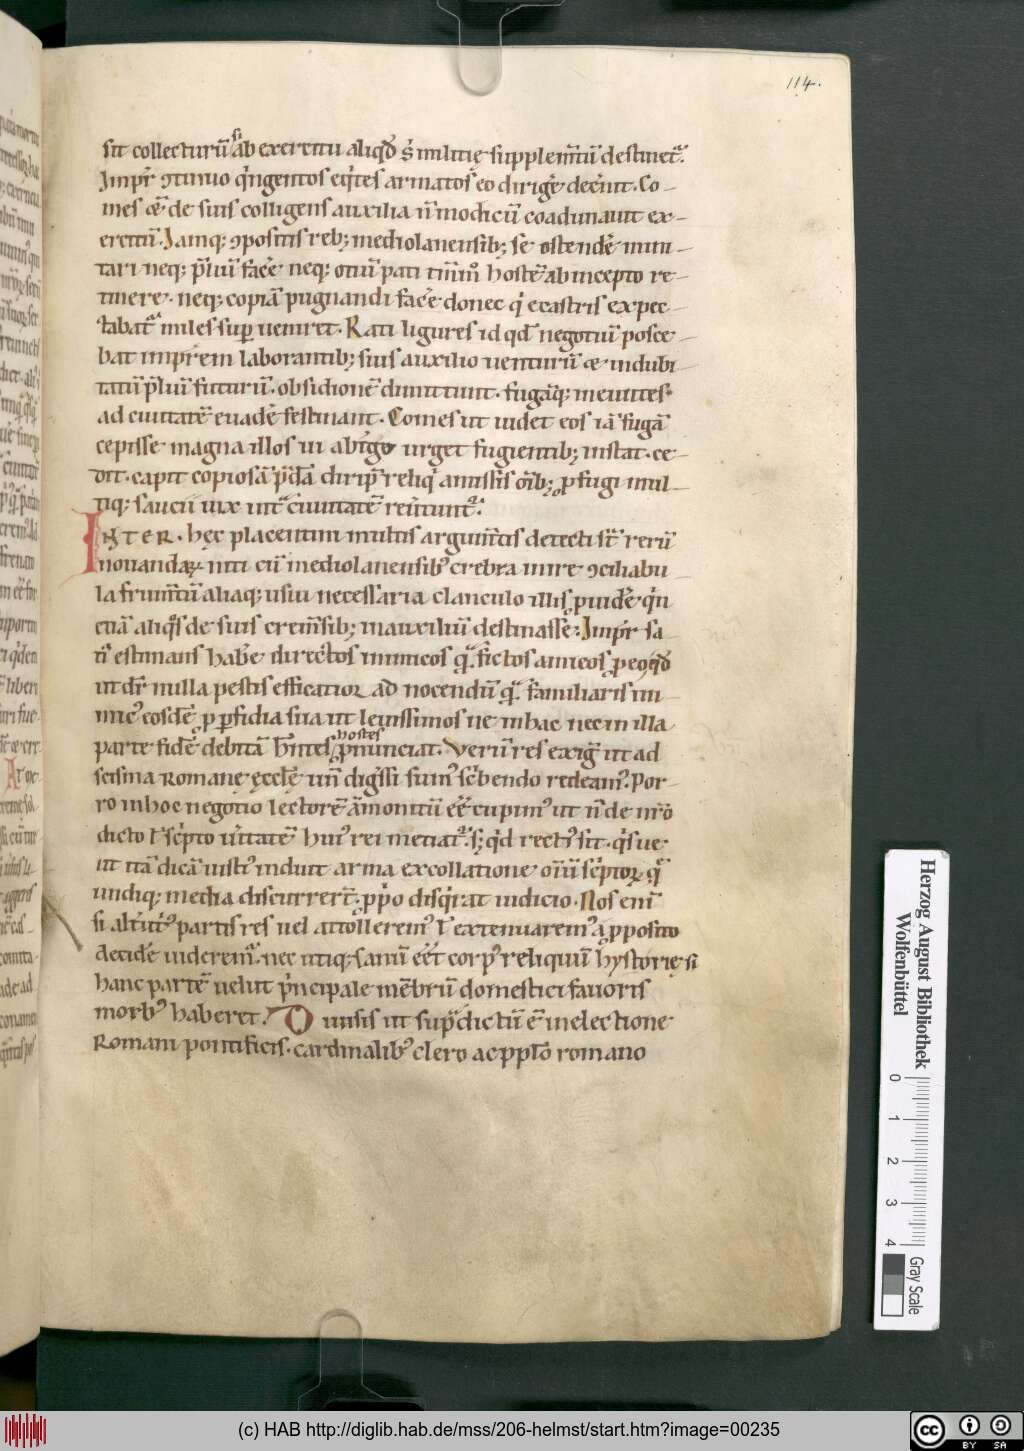 114.
sit collecturū si ab exercitu aliqd̄ s̄ militię supplem̄tū destinet᷑.
Impr̄ ꝯtinuo qͥngentos eqͥtes armatos eo dirige᷑ dec̄nit. Co-
mes q̄ de suis colligens auxilia n̄ modicū coadunauit ex-
ercitū. Iamqꝫ ꝯpositis rebꝫ mediolanensibꝫ se ostende᷑ mun-
tari neqꝫ p̄liū face᷑ neqꝫ otiū pati
hostē ab incepto re-
tinere. neqꝫ copiā pugnandi face᷑ donec qͥ e castris expec-
tabat᷑ miles suꝑueniret. Rati ligures id qd̄ negotiū posce-
bat impr̄em laborantibꝫ suis auxilio venturū & indubi-
tatū p̄liū futurū. obsidionē dimittunt. fugāqꝫ meuntes
ad ciuitatē euade᷑ festinant. Comes ut uidet eos iā fugā
cepisse magna illos ui
urget fugientibꝫ instat. ce-
dit. capit copiosā p̄dā dirip̄ reliqͥ amissis om̄ibꝫ ꝓfugi mul-
tiqꝫ saucii uix int᷑ ciuitatē
INTER. hęc placentini multis argum̄tis detecti st̄ rerū
nouandaꝝ niti cū mediolanensibꝰ crebra inire ꝯciliabu-
la frum̄tū aliaqꝫ usui necessaria clanculo illis ꝓuide᷑ qͥn
etiā aliqͦs de suis crem̄sibꝫ in auxiliū destinasse. Impr̄ sa-
ti᷑ estimans habe᷑ directos inimicos qᷓ fictos amicos ꝓ eo qd̄
ut dr̄ nulla pestis efficatior ad nocendū qᷓ familiaris ini-
micꝰ eosdē ꝓ ꝑfidia sua ut leuissimos ne in hac nec in illa
parte fidē debitā hn̄tes hostes ꝓnunciat. Verū res exigit᷑ ut ad
scisma Romanę ęcclę un̄ digͤssi sumꝰ sc̄bendo redeamꝰ. Por-
ro in hoc negotio lectorē āmonitū ēē cupimꝰ ut n̄ de nr̄o
dicto ł scͥpto u᷑itatē huiꝰ rei metiat᷑. sꝫ qd̄ rectiꝰ sit. qͥ sue
ut ita dicā uistꝰ induit arma ex collatione oīū scͥptoꝝ qᷓ
undiqꝫ media discurrer̄t. ꝓprio disqͥrat iudicio. Nos enī
si alt᷑utͥꝰ partis res uel attolleremꝰ ł extenuaremꝰ a ꝓposito
decide᷑ uideremᷣ. nec utiqꝫ sanū ēēt corpꝰ reliquū hystorię si
hanc partē velut pͥncipale mēbrū domestici fauoris
morbꝰ haberet. Diuisis ut sup᷑dictū ē in electione
Romani pontificis. cardinalibꝰ clero ac ppl̄o romano
Herzog August Bibliothek
Wolfenbüttel
0 1 2 3 4
Gray Scale
(c) HAB http://diglib.hab.de/mss/206-helmst/start.htm?image=00235
cc BY SA